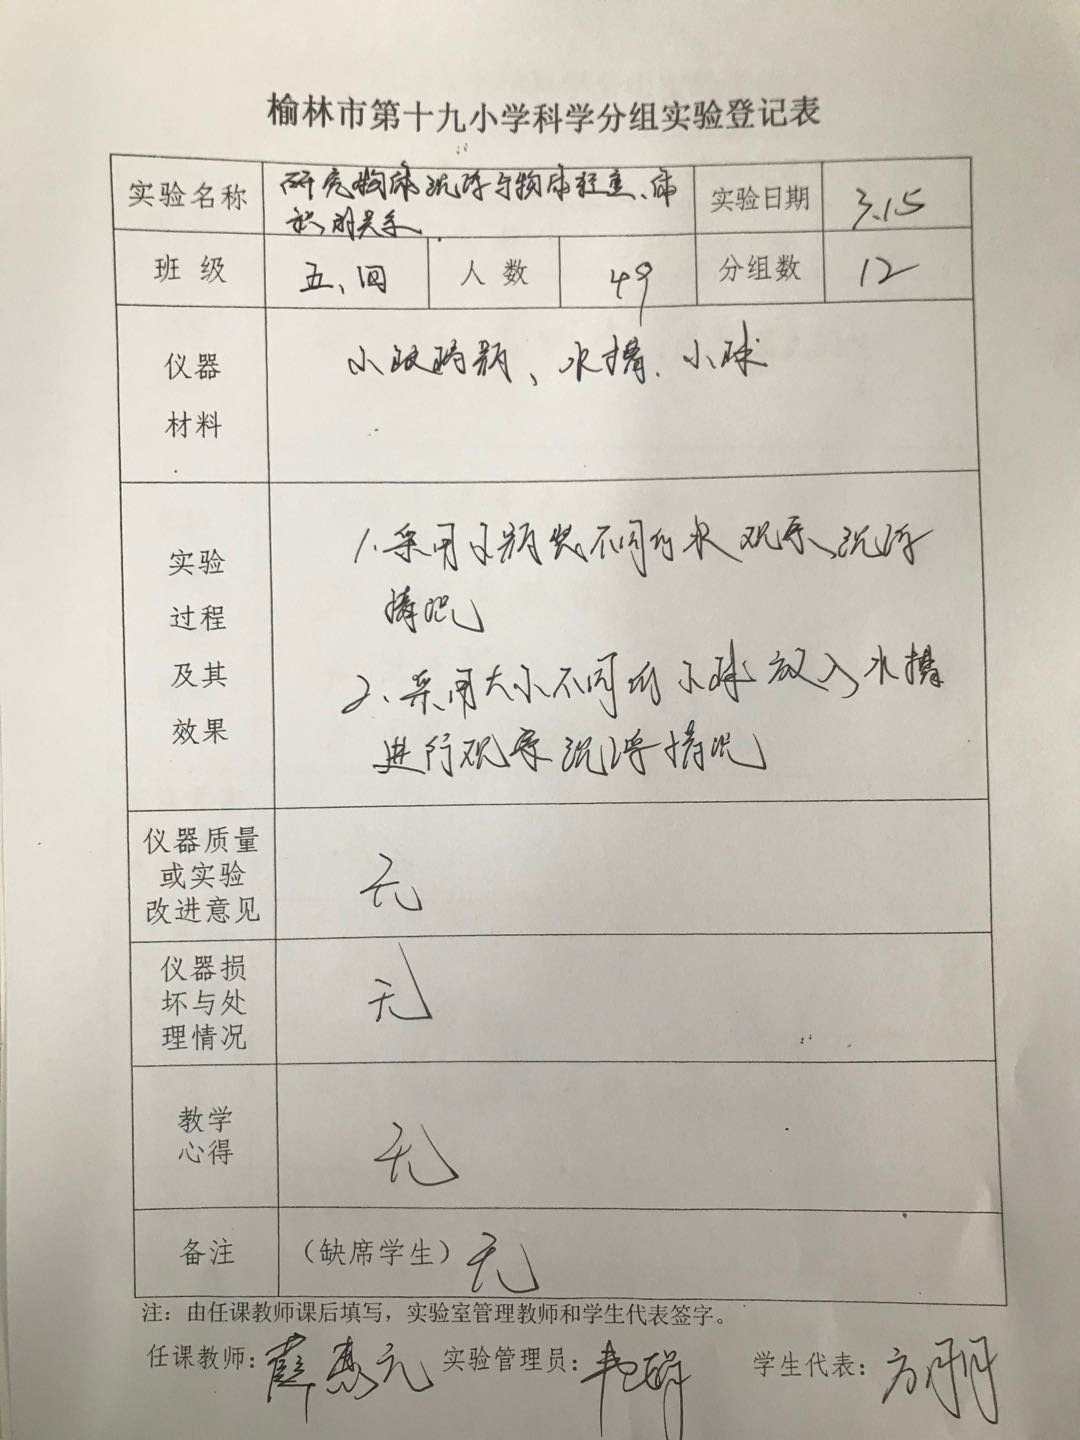 榆林市第十九小学科学分组实验登记表
实验名称 研究物体沉浮与物体轻重、体积的关系. 实验日期 3.15
班 级 五、四 人 数 49 分组数 12
仪器
材料
小玻璃瓶、水槽、小球
实验
过程
及其
效果
1.采用小瓶装不同的水 观察沉浮
情况
2、采用大小不同的小球放入水槽
进行观察沉浮情况
仪器质量
或实验
改进意见
无
仪器损
坏与处
理情况
无
教学
心得
无
备注 （缺席学生）无
注：由任课教师课后填写，实验室管理教师和学生代表签字。
任课教师：薛惠元 实验管理员： 学生代表：方明明